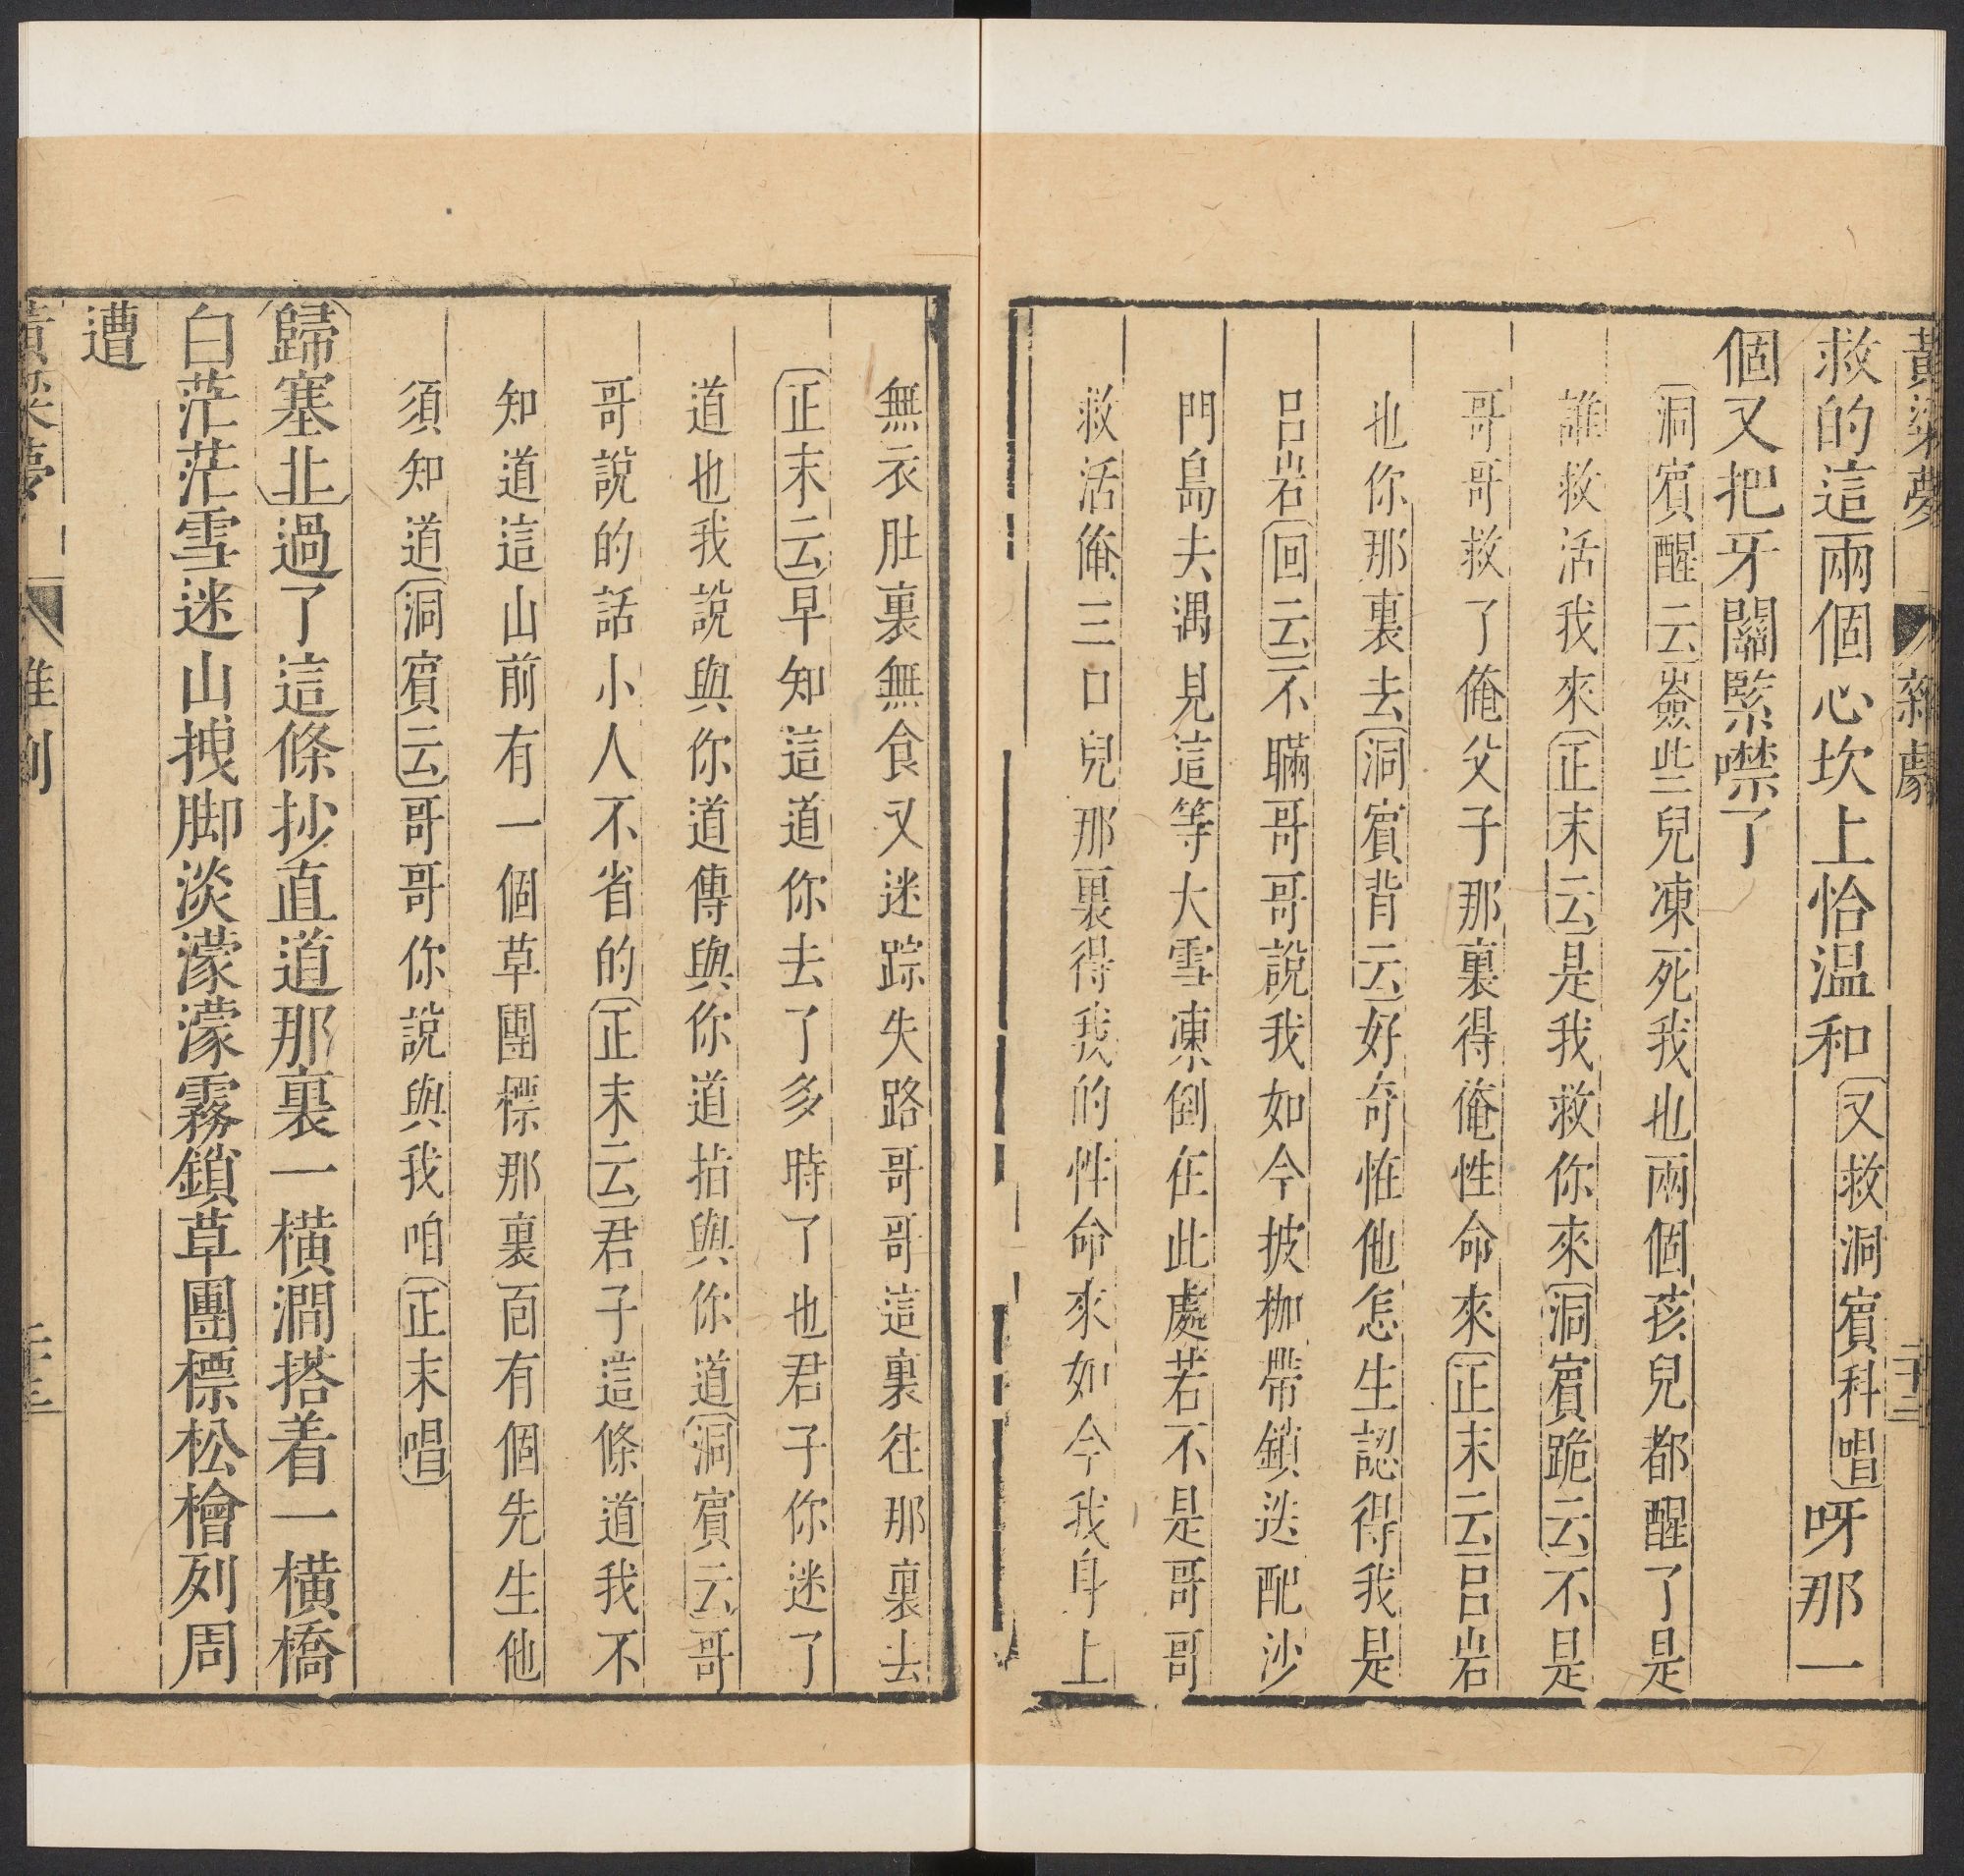 黃粱夢 雜劇 二十二
救的這兩個心坎上恰温和又救洞賓科唱呀那一
個又把牙關緊噤了
洞賓醒云嶮些兒凍死我也兩個孩兒都醒了是
誰救活我來正末云是我救你來洞賓跪云不是
哥哥救了俺父子那裏得俺性命來正末云吕岩
也你那裏去洞賓背云好奇恠他怎生認得我是
吕岩回云不瞞哥哥說我如今披枷帶鎖迭配沙
門島去遇見這等大雪凍倒在此處若不是哥哥
救活俺三口兒那裏得我的性命來如今我身上
無衣肚裏無食又迷踪失路哥哥這裏往那裏去
正末云早知這道你去了多時了也君子你迷了
道也我說與你道傳與你道指與你道洞賓云哥
哥說的話小人不省的正末云君子這條道我不
知道這山前有一個草團標那裏面有個先生他
須知道洞賓云哥哥你說與我咱正末唱
歸塞北過了這條抄直道那裏一横澗搭着一横橋
白茫茫雪迷山拽脚淡濛濛霧鎖草團標松檜列周
遭
黃粱夢 雜劇